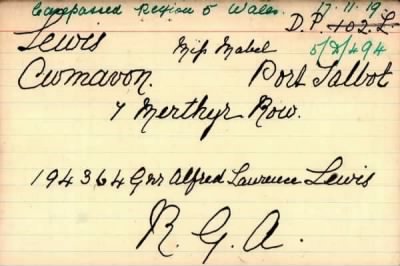 Compassed Region 5 Wales. 17.11.19.
D.P. 102.L.
5/D/494
Lewis Miss Mabel
Cwmavon. Port Talbot
7 Merthyr Row.
194364 Gnr Alfred Laurence Lewis
R. G. A.